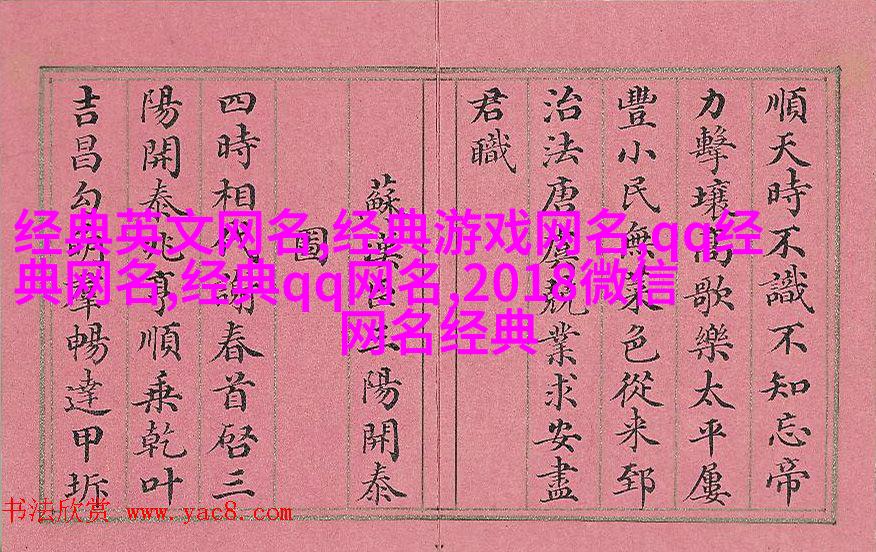 順天時不識不知忘帝
力擊壤高歌樂太平屢
豐小民無菜色從来郅
治法唐虞兢業求安盡
君職
蘇漢臣三陽開泰
圖
四時相代謝春首啓三
陽開泰兆亨順乗乾叶
吉昌勾萌羣暢達甲坼
经典英文网名,经典游戏网名,qq经
典网名,经典qq网名,2018微信
网名经典
书法欣赏 www.yac8.com